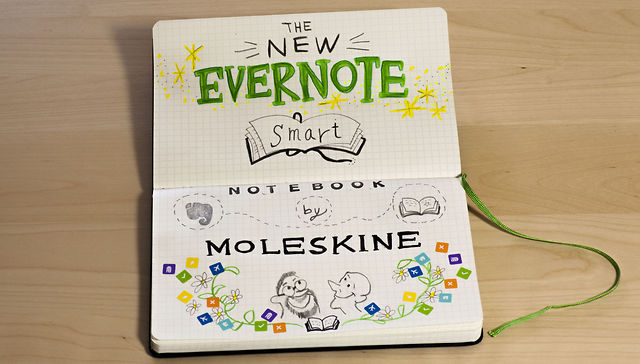 THE
NEW
EVERNOTE
Smart
NOTEBOOK
by
MOLESKINE